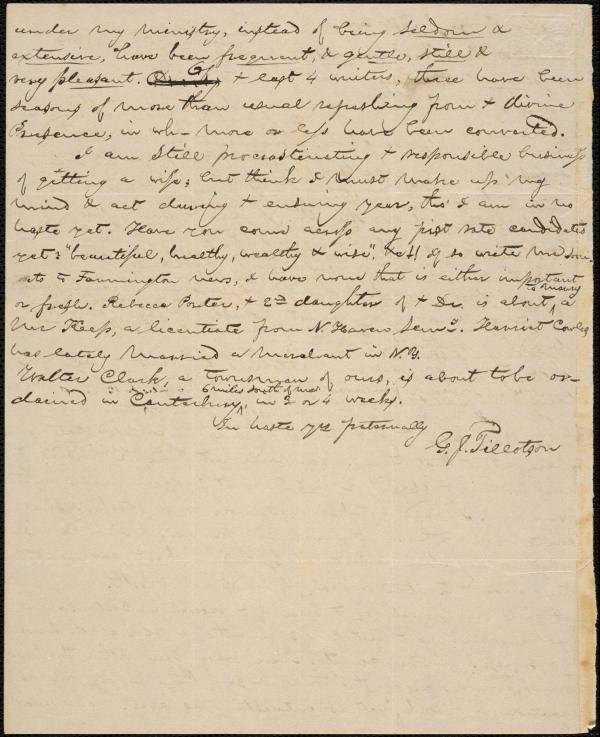 under my ministry, instead of being seldom &
extensive, have been frequent, & gentle, still &
very pleasant. + last 4 winters, three have been
seasons of more than usual refreshing from + divine
Presence, in wh- more or less have been converted.
I am still procrastinating + responsible business
of getting a wife; but think I must make up my
mind & act during + ensuing year, tho' I am in no
haste yet. Have you come across any first rate candidates
yet? "beautiful, healthy, wealthy & wise". If so write me
As to Farmington news, I have none that is either important
or fresh. Rebecca Porter, + 2nd daughter of + Dr. is about to marry a
Mr Keep, a licentiate from N. Haven Semy. Harriet Cowles
was lately married a merchant in N.Y.
Walter Clark, a townsman of ours, is about to be or-
dained in Canterbury, 6 miles south of me, in 3 or 4 weeks.
In haste yrs fraternally
G. J. Tillotson